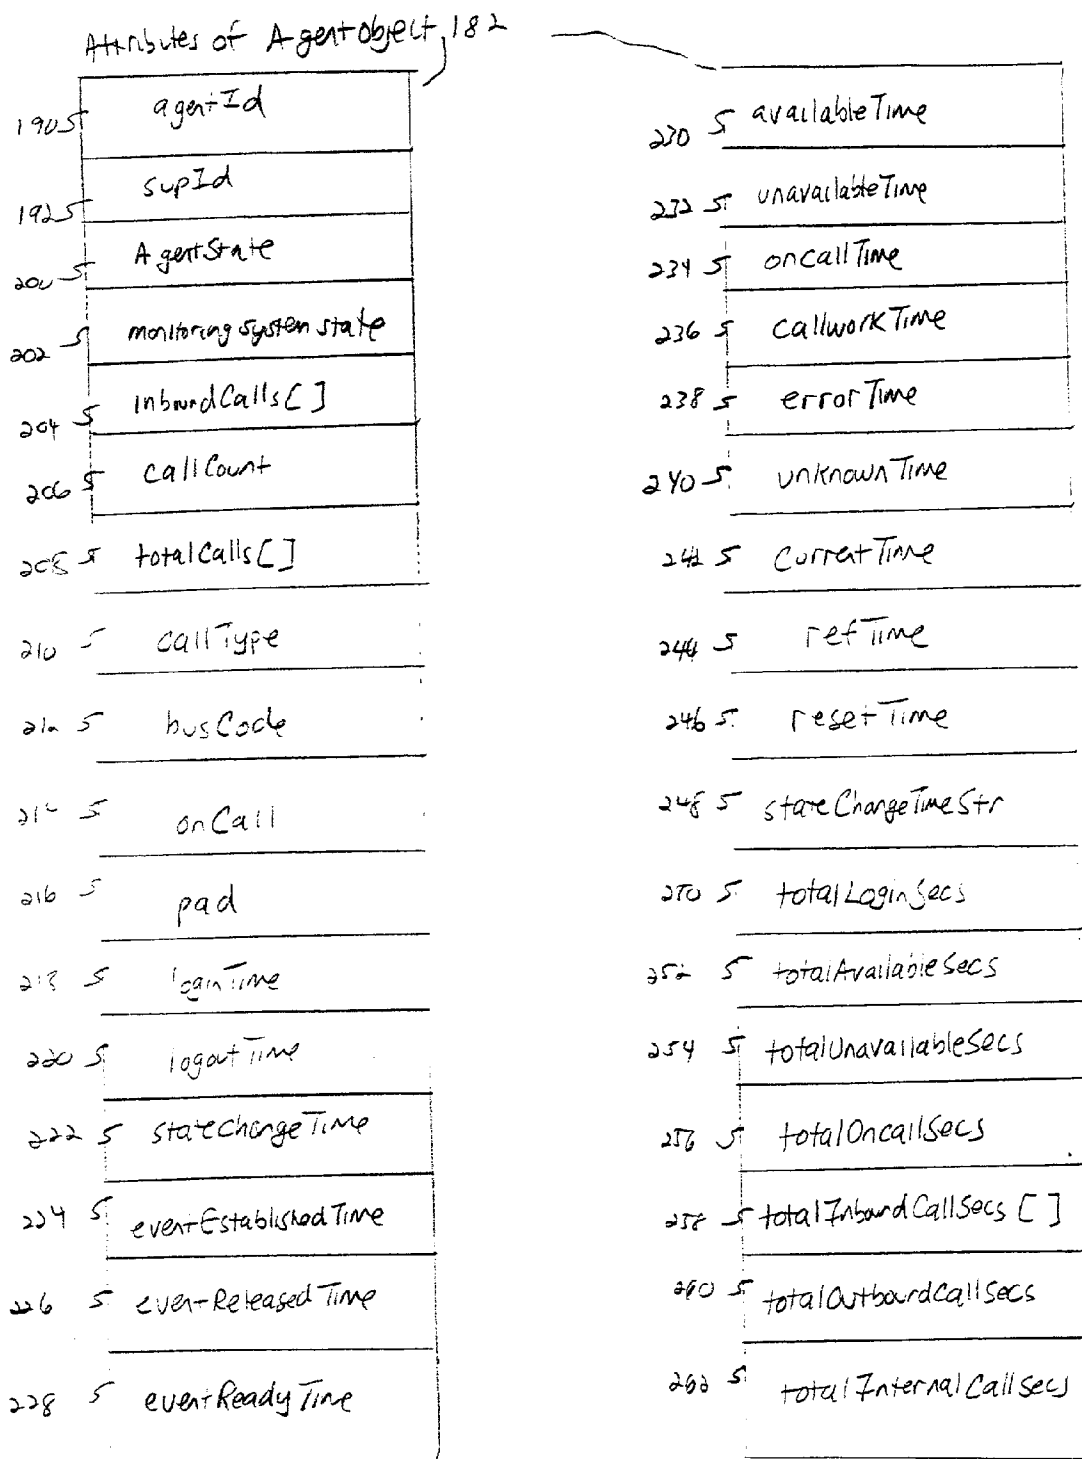 Attributes of Agent Object, 182
190 agentId
192 supId
200 AgentState
202 monitoring system state
204 inboundCalls[ ]
206 callCount
208 totalCalls[ ]
210 callType
212 busCode
214 onCall
216 pad
218 loginTime
220 logoutTime
222 stateChangeTime
224 eventEstablishedTime
226 eventReleasedTime
228 eventReadyTime
230 availableTime
232 unavailableTime
234 oncallTime
236 callworkTime
238 errorTime
240 unknownTime
242 CurrentTime
244 refTime
246 resetTime
248 stateChangeTimeStr
250 totalLoginSecs
252 totalAvailableSecs
254 totalUnavailableSecs
256 totalOncallSecs
258 totalInboundCallSecs [ ]
260 totalOutboundCallSecs
262 totalInternalCallSecs